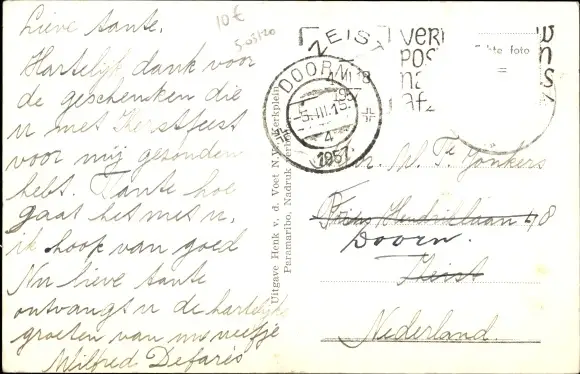 Lieve tante.
Hartelijk dank voor
de geschenken die
u met Kerstfeest
voor mij gezonden
hebt. Tante hoe
gaat het met u,
ik hoop van goed
Nu lieve tante
ontvangt u de hartelijke
groeten van uw neefje
Wilfred Defares
10 €
Uitgave Henk v. d. Voet N.V. Kerkplein
Paramaribo. Nadruk
ZEIST
1957
DOORN
5.III.19
4
1957
VER
POS
na
af
echte foto
=
M. Te Jonkers
Hendriklaan 48
Doorn.
Zeist
Nederland.